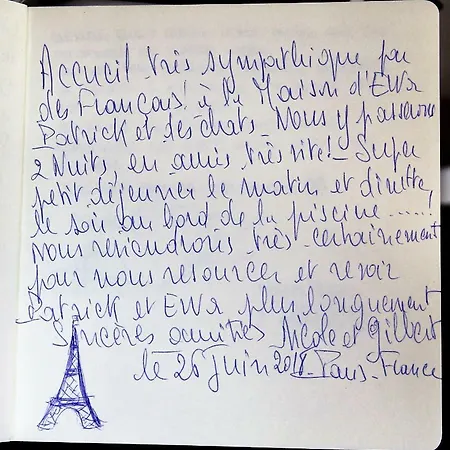 Accueil très sympathique par
des Français! à la Maison d'EWA
Patrick et des chats. Nous y passerons
2 Nuits, en amis très vite! - Super
petit déjeuner le matin et dinette
le soir au bord de la piscine ......!
Nous reviendrons très certainement
pour nous resourcer et revoir
Patrick et EWA plus longuement
Sincères amitiés Nicole et Gilbert
le 26 Juin Paris - France